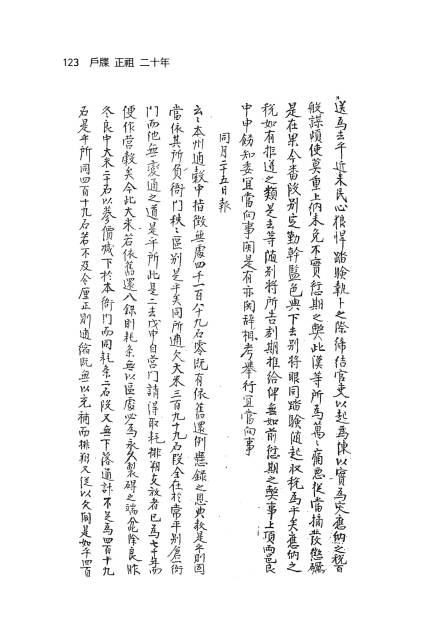 123 戶牒 正祖 二十年
送爲去乎近來民心狼悍踏驗執卜之際締結官吏以起爲陳以實爲灾應納之稅百
般謀頉使莫重上納未免不實愆期之弊此漢等所爲萬萬痛惡從當摘發懲礪
是在果今番段別定勤幹監色與下去別將眼同踏驗隨起收稅爲乎矣應納之
稅如有推逆之類是去等隨別將所告刻期推給俾無如前愆期之弊事上項兩邑良
中申飭知委宜當向事關是有亦關辭相考擧行宜當向事
同月二十五日報
云云本州逋穀中指徵無處四千一百八十九石零旣有依舊還例懸錄之恩典敎是乎則固
當依其所負衙門秩秩區別是乎矣同所逋欠大米三百九十九石段全在於常平別倉衙
門而他無變通之道是乎所此是二去戊申自營門請得取耗排朔支放者已爲七十年而
便作營穀矣今此大米若依舊還入錄則耗条無以區處必爲永久製碍之端兺除良昨
冬良中大米二十石以蔘價減下於本衙門而同耗条二石段又無下落通計不足爲四百十九
石是乎所同四百十九石若不及今厘正則逋縮旣無以充補而排朔又從以欠闕是如乎四百